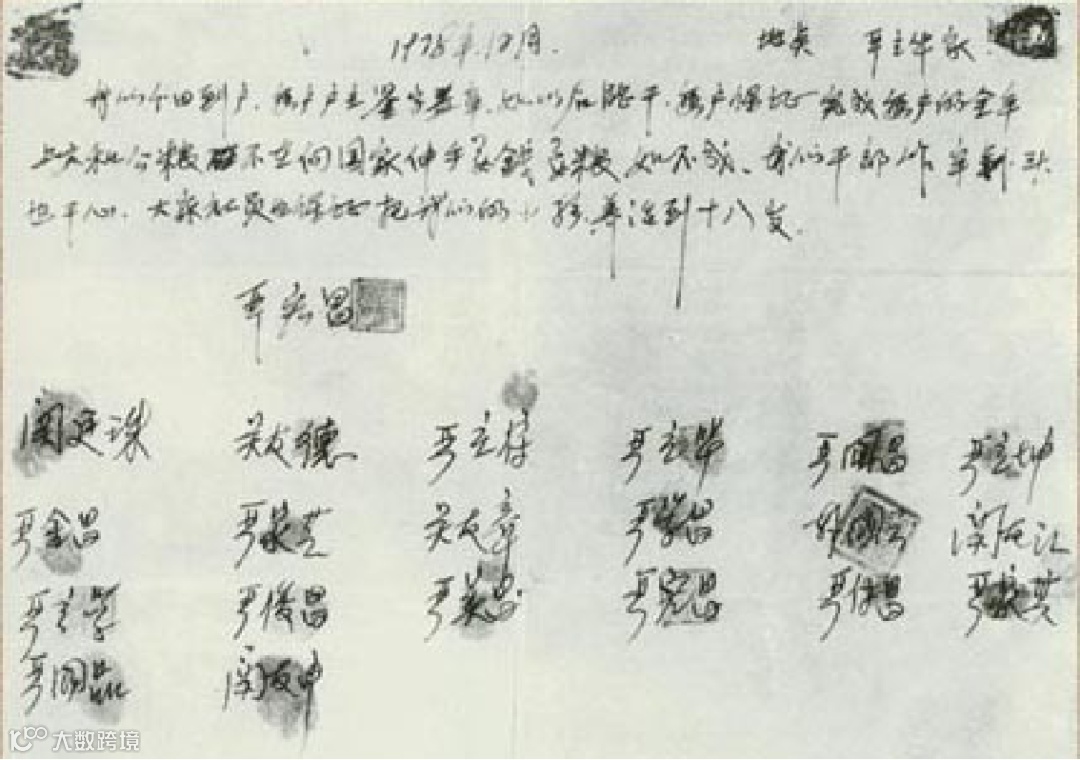 1978年12月. 地点 严立华家
我们分田到户.每户户主签字盖章.如以后能干.每户保证完成每户的全年
上交和公粮不在向国家伸手要钱要粮如不成、我们干部作牢刹头
也干心.大家社员也保证把我们的小孩养活到十八岁.
严宏昌
关廷珠 关友德 严立符 严立华 严国昌 严立坤
严金昌 严家芝 关友章 严学昌 韩国云 关友江
严立学 严俊昌 严美昌 严宏昌 严付昌 严家其
严国品 关友申
大数跨境